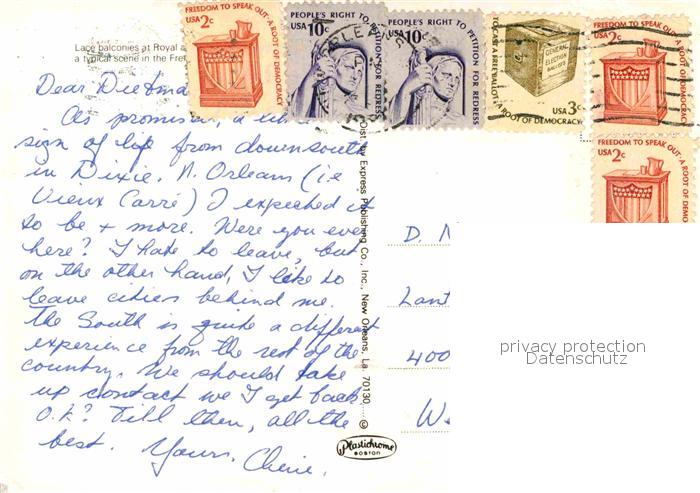 FREEDOM TO SPEAK OUT-A ROOT OF DEMOCRACY
USA 2c
PEOPLE'S RIGHT TO PETITION FOR REDRESS
USA 10c
PEOPLE'S RIGHT TO PETITION FOR REDRESS
USA 10c
TO CAST A FREE BALLOT A ROOT OF DEMOCRACY
GENERAL ELECTION BALLOTS
USA 3c
FREEDOM TO SPEAK OUT-A ROOT OF DEMOCRACY
USA 2c
FREEDOM TO SPEAK OUT-A ROOT OF DEMOCRACY
USA 2c
Lace balconies at Royal a
a typical scene in the Fre
Dear
As promised, a
sign of life from down south
in Dixie. N. Orleans (i.e
Vieux Carré) I expected it
to be + more. Were you ever
here? I hate to leave, but
on the other hand, I like to
leave cities behind me.
The South is quite a different
experience from the rest of the
country. We should take
up contact we I get back
O.K? Till then, all the
best. Yours, Cherie.
Dist. by Express Publishing Co., Inc., New Orleans, La. 70130. ©
D.
Lant
400
Plastichrome
BOSTON
privacy protection
Datenschutz